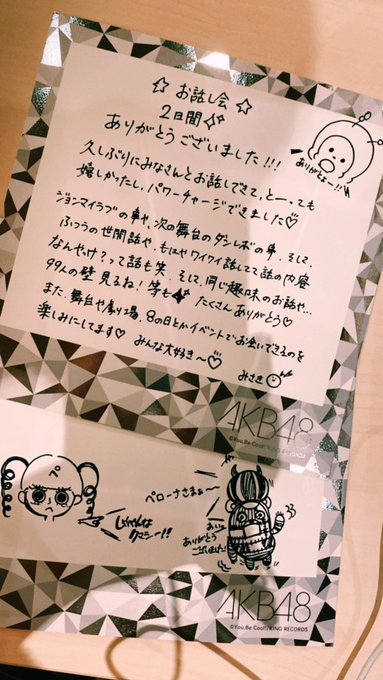 ☆ お話し会 ☆
2日間
ありがとうございました!!!
ありがとよー!!
久しぶりにみなさんとお話しできて、とーっても
嬉しかったし、パワーチャージできました♡
ジョンマイラブの事や、次の舞台のダンレボの事、そして、
ふつうの世間話や、もはやワイワイ話してて話の内容
なんやっけ?って話も笑、そして、同じ趣味のお話や…
99人の壁見るね!笑も たくさんありがとう♡
また、舞台や劇場、8の日とかイベントでお会いできるのを
楽しみにしてます♡ みんな大好き〜♡
みさき
AKB48
©You, Be Cool!/KING RECORDS
ペ
ペローナさまぁ
ありがとう
ございました!
AKB48
©You, Be Cool!/KING RECORDS